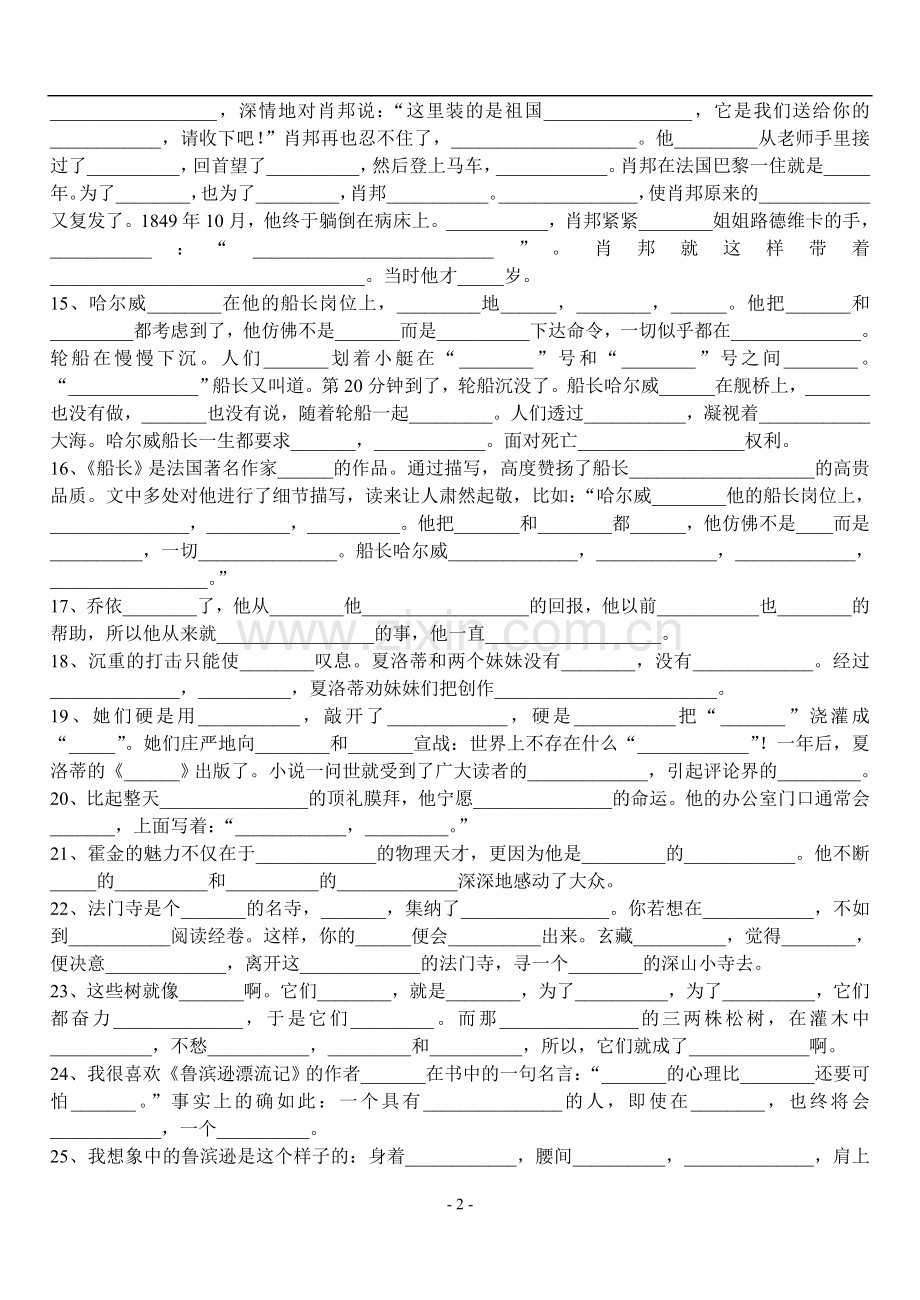 __________________，深情地对肖邦说：“这里装的是祖国________________，它是我们送给你的
____________，请收下吧！”肖邦再也忍不住了，____________________。他_________从老师手里接
过了__________，回首望了__________，然后登上马车，____________。肖邦在法国巴黎一住就是_____
年。为了_________，也为了_________，肖邦___________。_______________，使肖邦原来的____________
又复发了。1849 年 10 月，他终于躺倒在病床上。___________，肖邦紧紧________姐姐路德维卡的手，
___________：“__________________________”。肖邦就这样带着
__________________________________。当时他才_____岁。
15、哈尔威________在他的船长岗位上，_________地______，________，______。他把_______和
_________都考虑到了，他仿佛不是_______而是__________下达命令，一切似乎都在______________。
轮船在慢慢下沉。人们_______划着小艇在“________”号和“________”号之间________。
“______________”船长又叫道。第 20 分钟到了，轮船沉没了。船长哈尔威______在舰桥上，_______
也没有做，_______也没有说，随着轮船一起_________。人们透过___________，凝视着____________
大海。哈尔威船长一生都要求_______，____________。面对死亡__________________权利。
16、《船长》是法国著名作家______的作品。通过描写，高度赞扬了船长____________________的高贵
品质。文中多处对他进行了细节描写，读来让人肃然起敬，比如：“哈尔威________他的船长岗位上，
_______________，_________，__________。他把_______和________都______，他仿佛不是____而是
__________，一切_______________。船长哈尔威______________，_____________，_____________，
_________________。”
17、乔依________了，他从________他__________________的回报，他以前___________也________的
帮助，所以他从来就_________________的事，他一直___________________。
18、沉重的打击只能使________叹息。夏洛蒂和两个妹妹没有________，没有_____________。经过
______________，__________，夏洛蒂劝妹妹们把创作________________________。
19、她们硬是用___________，敲开了_____________，硬是___________把“_______”浇灌成
“_____”。她们庄严地向________和_______宣战：世界上不存在什么“____________”！一年后，夏
洛蒂的《______》出版了。小说一问世就受到了广大读者的_____________，引起评论界的_________。
20、比起整天________________的顶礼膜拜，他宁愿_______________的命运。他的办公室门口通常会
_______，上面写着：“____________，_________。”
21、霍金的魅力不仅在于_____________的物理天才，更因为他是_________的____________。他不断
_____的__________和__________的_____________深深地感动了大众。
22、法门寺是个_______的名寺，_______，集纳了________________。你若想在____________，不如
到___________阅读经卷。这样，你的______便会__________出来。玄藏__________，觉得________，
便决意_____________，离开这_____________的法门寺，寻一个________的深山小寺去。
23、这些树就像_______啊。它们________，就是________，为了__________，为了__________，它们
都奋力______________，于是它们_________。而那_______________的三两株松树，在灌木中
___________，不愁___________，________和__________，所以，它们就成了_____________啊。
24、我很喜欢《鲁滨逊漂流记》的作者_______在书中的一句名言：“_______的心理比________还要可
怕_______。”事实上的确如此：一个具有_______________的人，即使在________，也终将会
____________，一个__________。
25、我想象中的鲁滨逊是这个样子的：身着____________，腰间__________，______________，肩上
www.zixin.com.cn
- 2 -